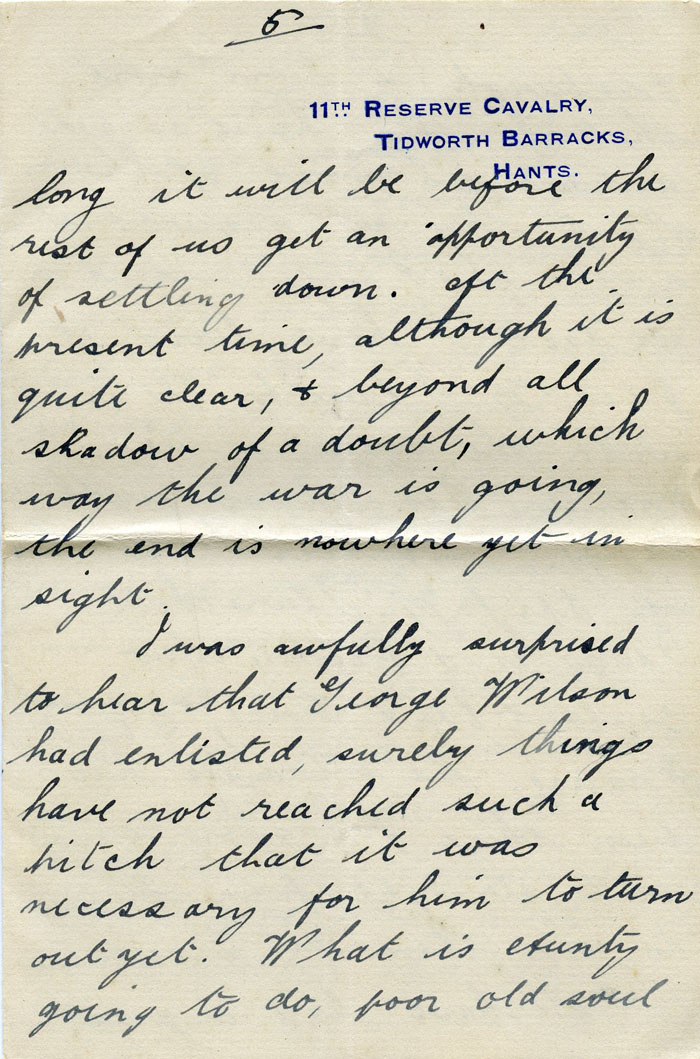 5
11TH RESERVE CAVALRY,
TIDWORTH BARRACKS,
HANTS.
long it will be before the
rest of us get an opportunity
of settling down. At the
present time, although it is
quite clear, & beyond all
shadow of a doubt, which
way the war is going,
the end is nowhere yet in
sight.
I was awfully surprised
to hear that George Wilson
had enlisted, surely things
have not reached such a
pitch that it was
necessary for him to turn
out yet. What is Aunty
going to do, poor old soul